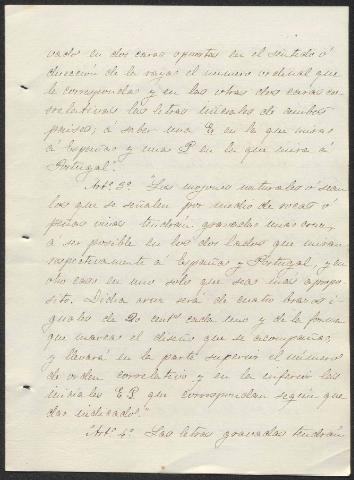 vado en dos caras opuestas en el sentido ó
dirección de la raya, el número ordinal que
le corresponda y en las otras dos caras co-
rrelativas las letras iniales de ambos
paises; á saber una E. en la que mira
á España y una P. en la que mira á
Portugal.
Artº. 3º. "Los mojones naturales ó sean
los que se señalen por medio de rocas ó
peñas vivas tendrán gravadas unas cruces,
á ser posible en los dos lados que miran
respectivamente á España y Portugal, y en
otro caso en uno solo que sea más á propo-
sito. Dicha cruz será de cuatro brazos i-
guales de 20 centº cada uno y de la forma
que marca el diseño que se acompaña,
y llevará en la parte superior el número
de orden correlativo y en la inferior las
iniciales E P que correspondan según que-
da indicado."
"Artº. 4º. Las letras gravadas tendrán